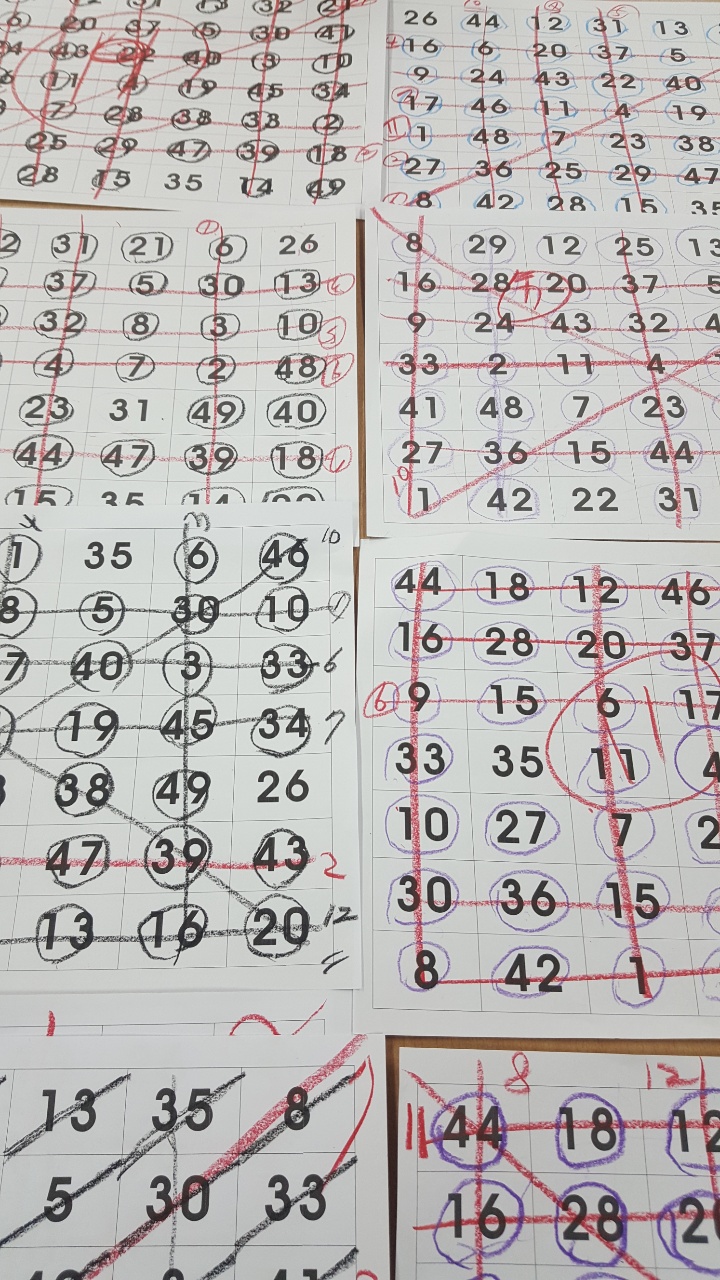 20 37 5 30 41
43 22 40 3 10
11 4 19 45 34
7 28 38 33 2
25 29 47 39 18
28 15 35 14 49
26 44 12 31 13
16 6 20 37 5
9 24 43 22 40
17 46 11 4 19
1 48 7 23 38
27 36 25 29 47
8 42 28 15 35
31 21 6 26
37 5 30 13
32 8 3 10
4 7 2 48
23 31 49 40
44 47 39 18
15 35 14
8 29 12 25 13
16 28 20 37 5
9 24 43 32
33 2 11 4
41 48 7 23
27 36 15 44
1 42 22 31
1 35 6 46 10
8 5 30 10 9
7 40 3 33 6
19 45 34 7
38 49 26
47 39 43 2
13 16 20 12
44 18 12 46
16 28 20 37
6 9 15 6 17
33 35 11 4
10 27 7 2
30 36 15
8 42 1
13 35 8
5 30 33
8 12
11 44 18 12
16 28